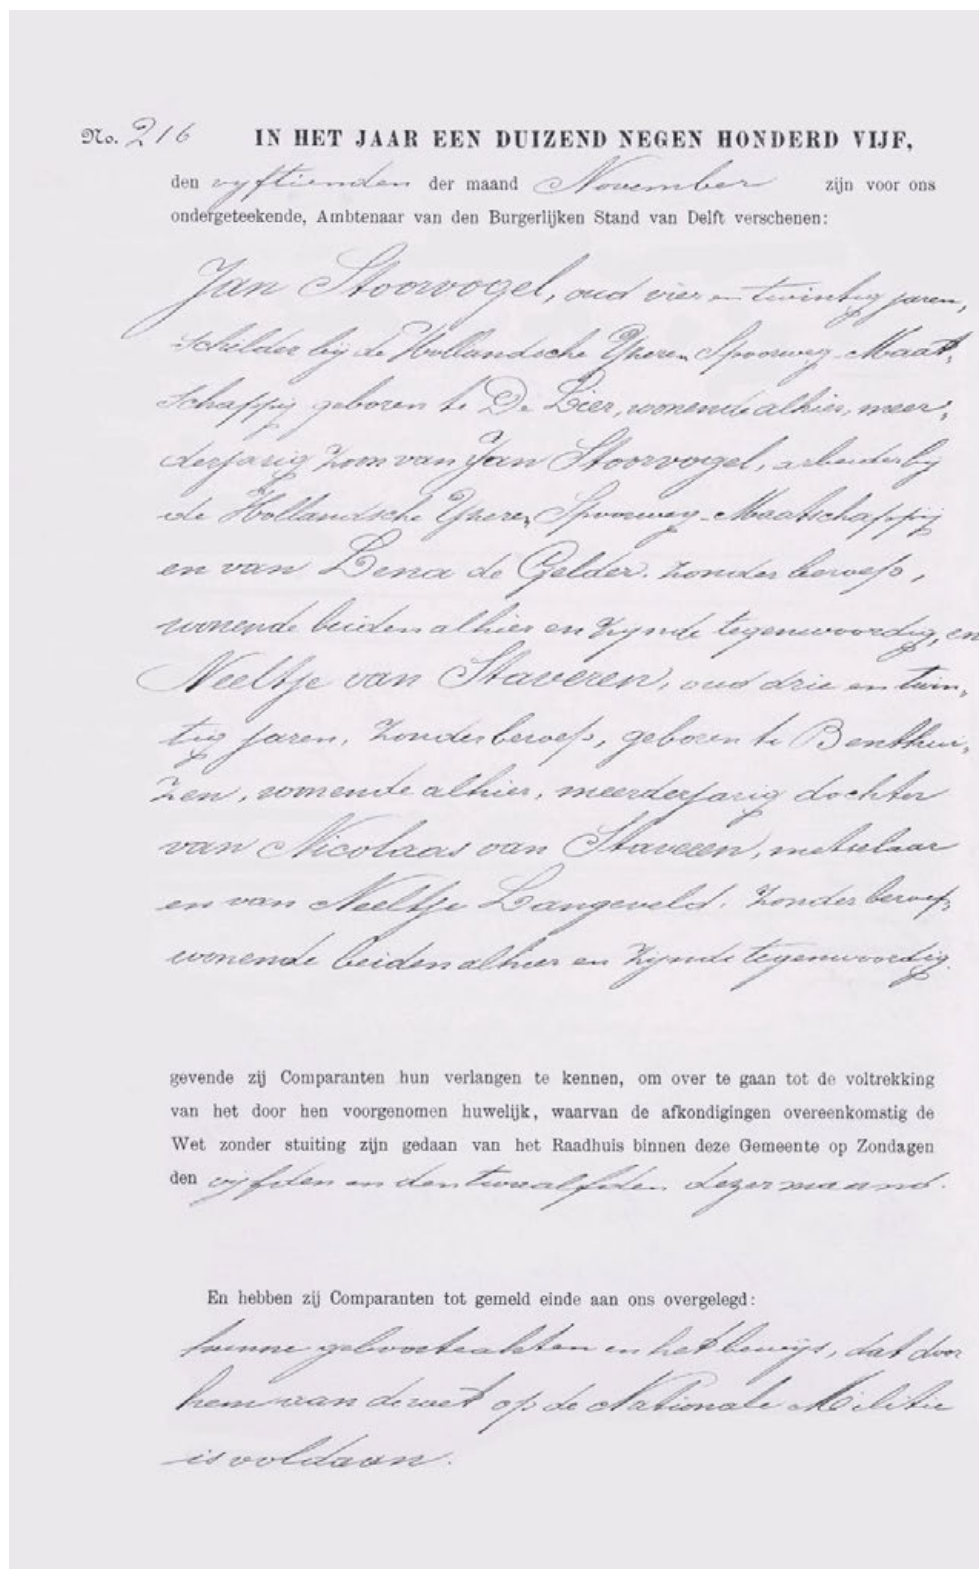 No. 216 IN HET JAAR EEN DUIZEND NEGEN HONDERD VIJF,
den vyftienden der maand November zijn voor ons
ondergeteekende, Ambtenaar van den Burgerlijken Stand van Delft verschenen:
Jan Stoorvogel, oud vier en twintig jaren,
schilder bij de Hollandsche Yzeren Spoorweg-Maat-
schappij geboren te De Lier, wonende alhier, meer-
derjarig zoon van Jan Stoorvogel, arbeider bij
de Hollandsche Yzeren Spoorweg-Maatschappij
en van Lena de Gelder, zonder beroep,
wonende beiden alhier en zynde tegenwoordig, en
Neeltje van Staveren, oud drie en twin-
tig jaren, zonder beroep, geboren te Benthui-
zen, wonende alhier, meerderjarig dochter
van Nicolaas van Staveren, metselaar
en van Neeltje Langeveld, zonder beroep,
wonende beiden alhier en zynde tegenwoordig.
gevende zij Comparanten hun verlangen te kennen, om over te gaan tot de voltrekking
van het door hen voorgenomen huwelijk, waarvan de afkondigingen overeenkomstig de
Wet zonder stuiting zijn gedaan van het Raadhuis binnen deze Gemeente op Zondagen
den vyfden en den twaalfden dezer maand.
En hebben zij Comparanten tot gemeld einde aan ons overgelegd:
hunne geboorteakten en het bewijs, dat door
hem aan de wet op de Nationale Militie
is voldaan.